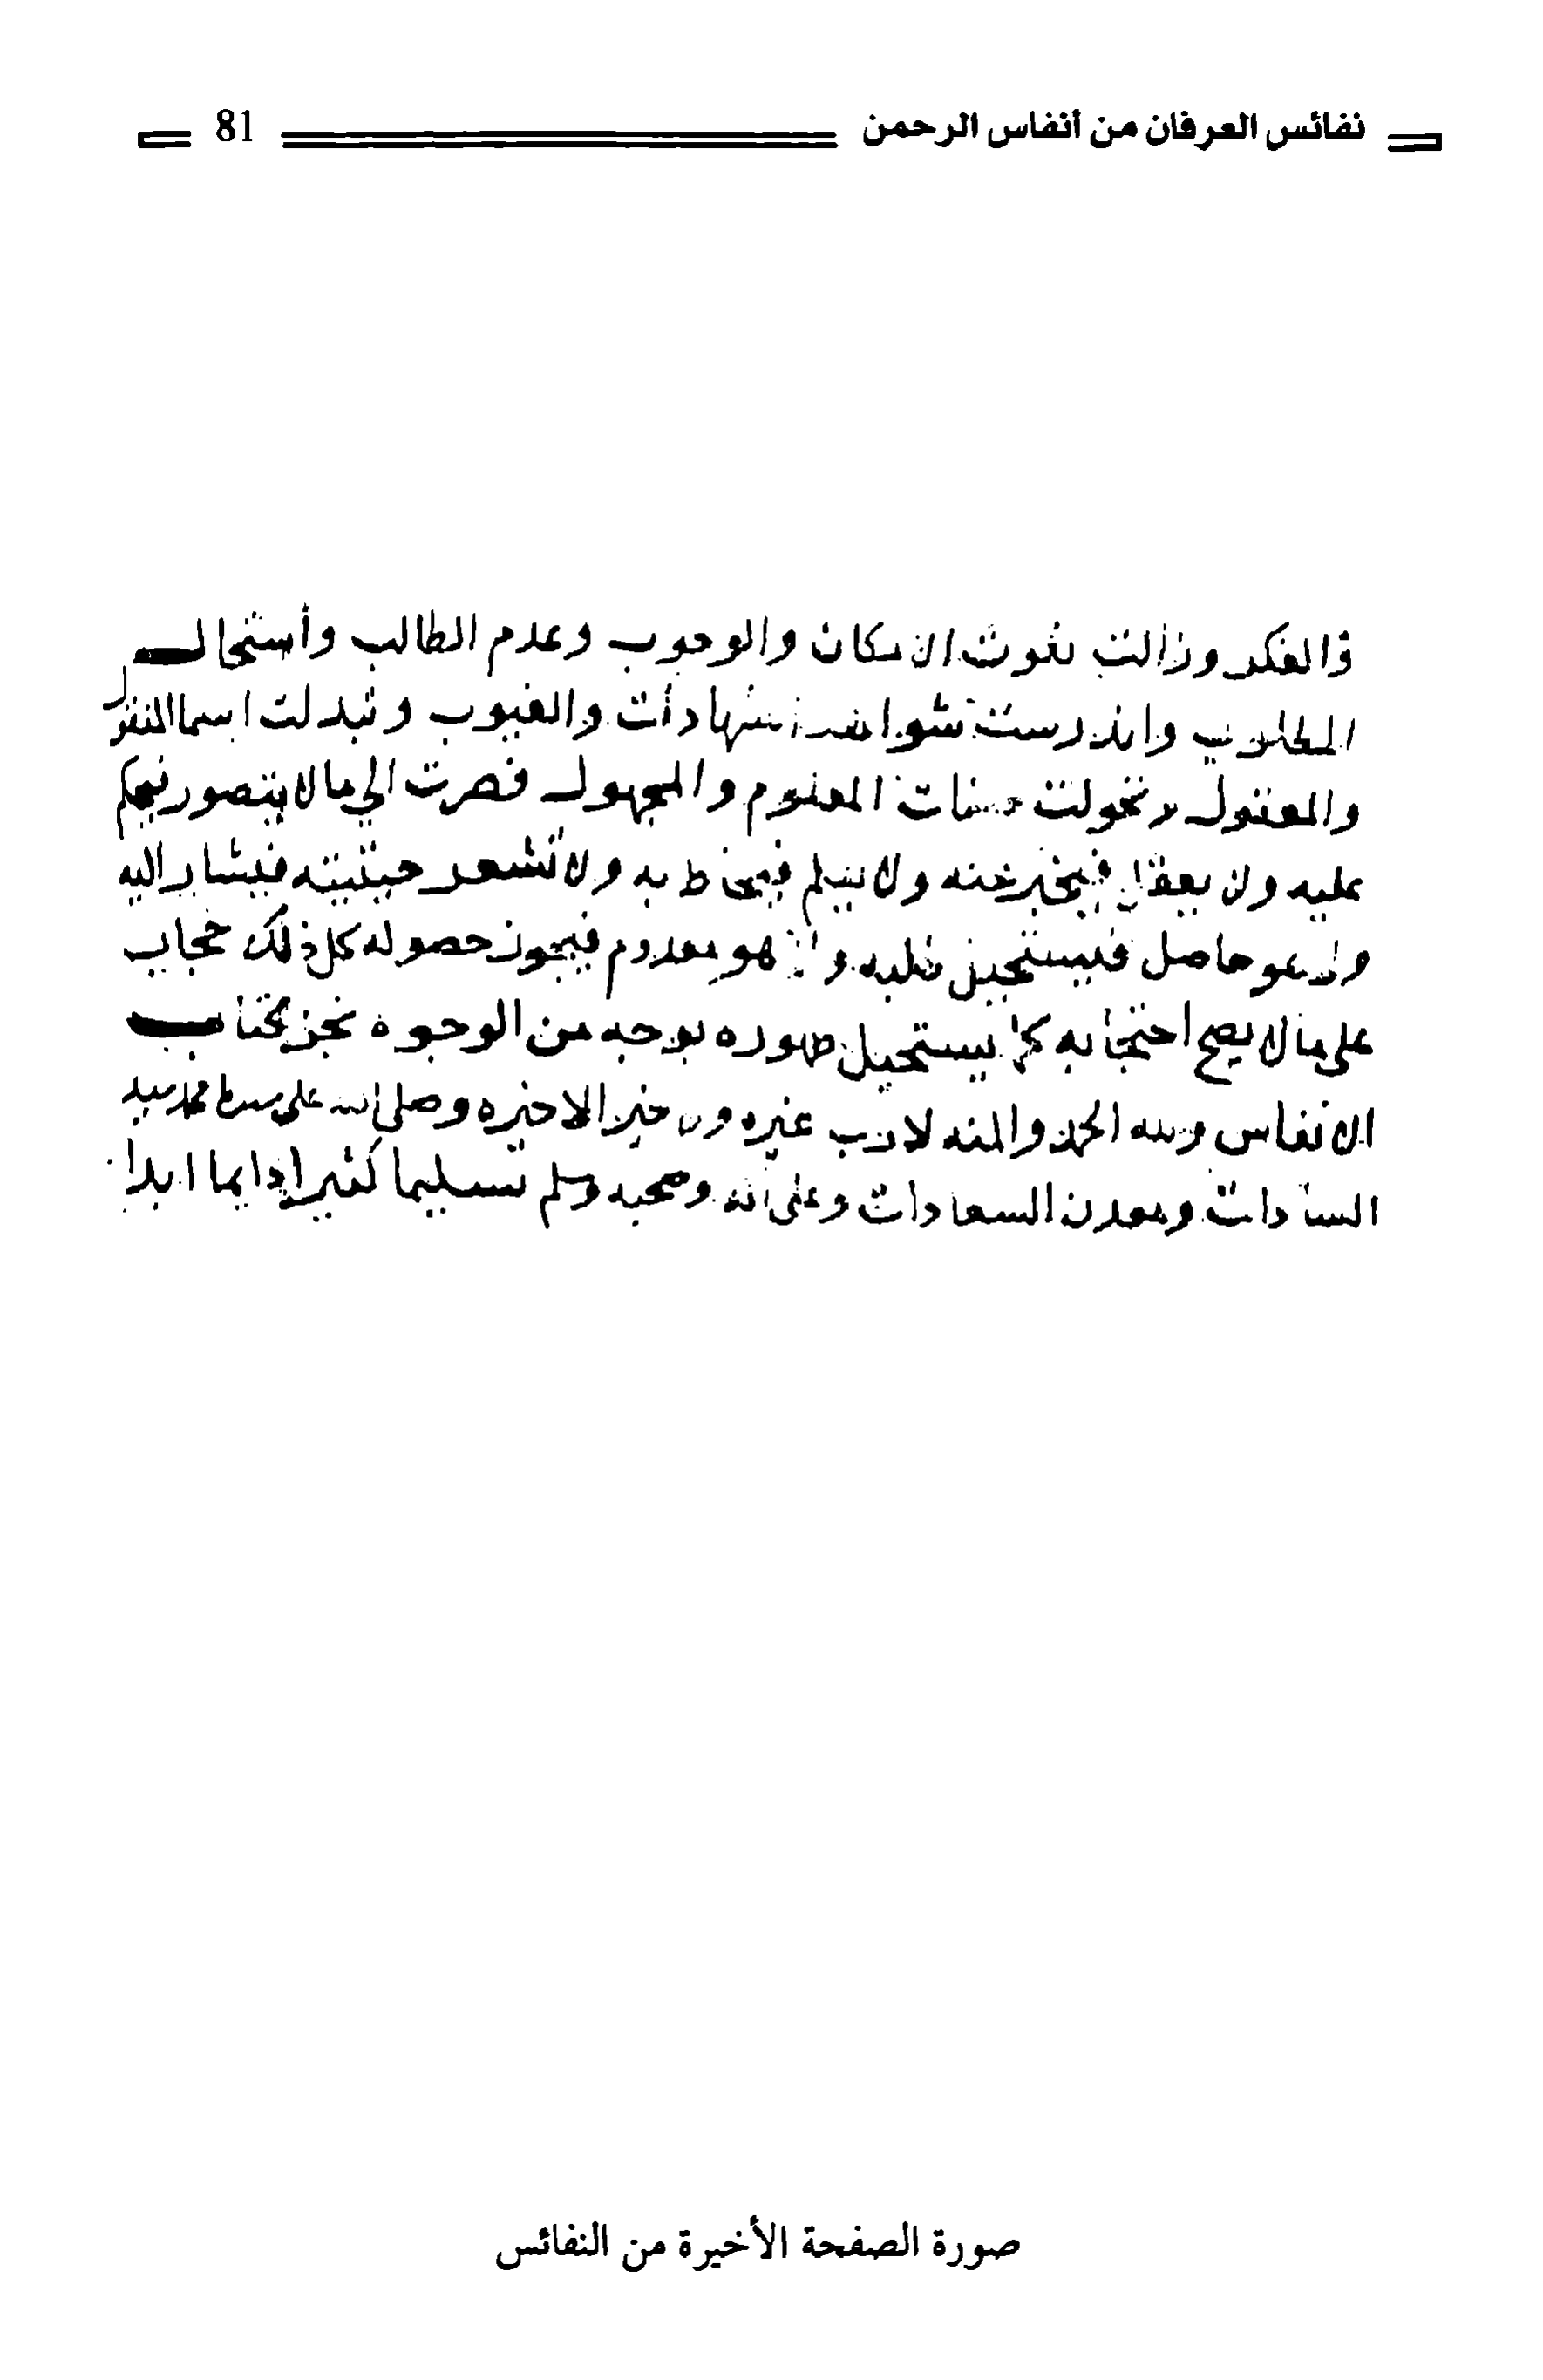 نفائس العرفان من أنفاس الرحمن 81
والفكر وزالت نعوت الامكان والوجوب وعدم الطالب وأستحال
المطلوب واندرست شواهد الشهادات والغيوب وتبدلت اسما المنقول
والمعقول وتحولت صفات المعلوم والمجهول فصرت الي مالا يتصور فيحكم
عليه ولا يعقل فيخبر عنه ولا يعلم فيحاط به ولا تشعر حيثيته فيشار اليه
ولا هو حاصل فيستحيل طلبه ولا هو معدوم فيجوز حصوله كل ذلك حجاب
على مالا يصح احتجابه كما يستحيل ظهوره بوجه من الوجوه نجز كتاب
الانفاس ولله الحمد والمنه لا رب غيره ولا خير الا خيره وصلى الله على محمد سيد
السادات ومعدن السعادات وعلى اله وصحبه وسلم تسليما كثيرا دايما ابدا
صورة الصفحة الأخيرة من النفائس